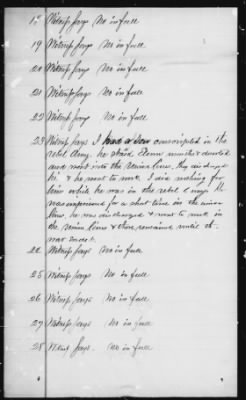 18 Witness Says No in full
19 Witness Says No in full
20 Witness Says No in full
21 Witness Says No in full
22 Witness Says No in full
23 Witness Says I had a Son conscripted in the
rebel Army. he staid months & deserted
and went into the Union lines, they
& he went to I did nothing for
him while he was in the rebel army. He
was imprisoned for a short time in the union
lines, he was discharged & went to work in
the Union lines & there remained until the
war ended.
24 Witness Says No in full
25 Witness Says No in full
26 Witness Says No in full
27 Witness Says No in full
28 Witness Says. No in full